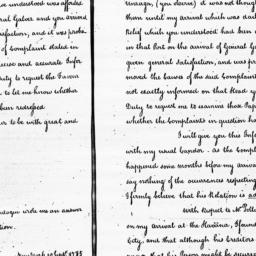 understood was afforded
eral Galvez and you arrived
satisfaction, and it was proba
of Complaint stated in
precise and accurate Infor
Duty to request the Favor
to let me know whether
been redressed
to be with great and
wrote me an answer
tion.
New York 10 Sept 1785
Uneasy, (you observe) it was not though
them until my arrival which was dail
Relief which you understood had been a
in that Port on the arrival of General G
given general Satisfaction, and was pro
moved the Causes of the said Complaint
not exactly informed on that Head you
Duty to request me to examine those Pape
whether the Complaints in question ha
I will give you this Info
with my usual Candor. as the Compla
happened some months before my arrival
say nothing of the occurrences respecting
I firmly believe that his Relation is
with Respect to Mr Pollo
on my arrival at the Havana, I foun
City, and that although his Creditors